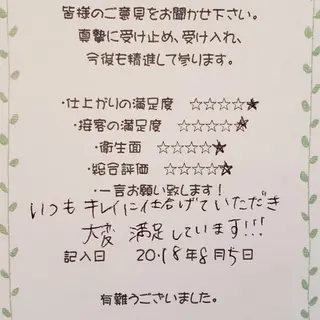 皆様のご意見をお聞かせ下さい。
真摯に受け止め、受け入れ、
今後も精進して参ります。
・仕上がりの満足度 ☆☆☆☆★
・接客の満足度 ☆☆☆☆★
・衛生面 ☆☆☆☆★
・総合評価 ☆☆☆☆★
・一言お願い致します!
いつもキレイに仕上げていただき
大変満足しています!!!
記入日 2018年8月5日
有難うございました。